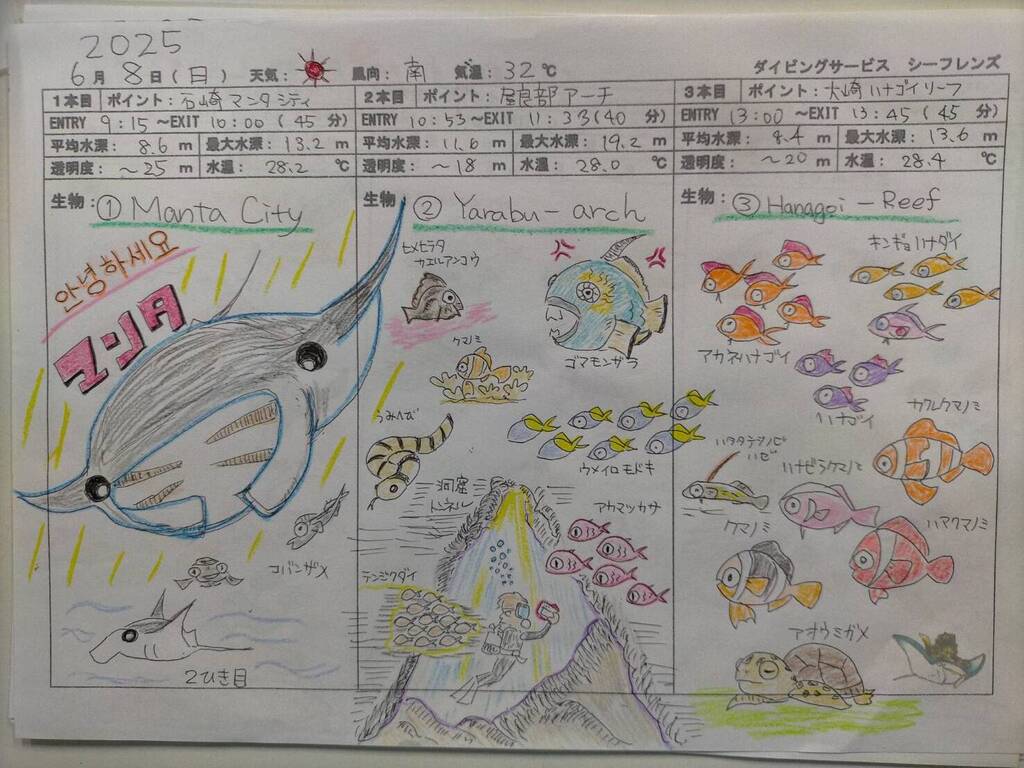 2025
6月 8日(日) 天気: 風向: 南 気温: 32℃ ダイビングサービス シーフレンズ
1本目 ポイント: 石崎マンタシティ
ENTRY 9:15 ~EXIT 10:00 (45 分)
平均水深: 8.6 m 最大水深: 13.2 m
透明度: ~25 m 水温: 28.2 ℃
生物: ① Manta City
안녕하세요
マンタ
コバンザメ
2ひき目
2本目 ポイント: 屋良部アーチ
ENTRY 10:53 ~EXIT 11:33 (40 分)
平均水深: 11.6 m 最大水深: 19.2 m
透明度: ~18 m 水温: 28.0 ℃
生物: ② Yarabu-arch
ヒメヒラタ
カエルアンコウ
ゴマモンガラ
クマノミ
うみへび
ウメイロモドキ
洞窟
トンネル
アカマツカサ
テンジクダイ
3本目 ポイント: 大崎ハナゴイリーフ
ENTRY 13:00 ~EXIT 13:45 (45 分)
平均水深: 8.4 m 最大水深: 13.6 m
透明度: ~20 m 水温: 28.4 ℃
生物: ③ Hanagoi-Reef
キンギョハナダイ
アカネハナゴイ
ハナゴイ
カクレクマノミ
ハタタテシノビ
ハゼ
ハナビラクマノミ
クマノミ
ハマクマノミ
アオウミガメ